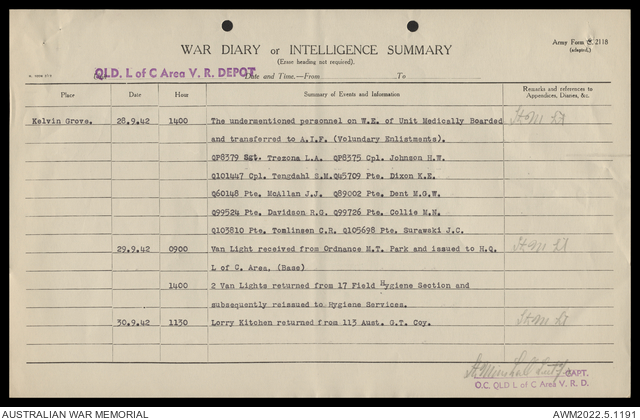 Army Form C. 2118
(adapted.)
WAR DIARY or INTELLIGENCE SUMMARY
(Erase heading not required).
QLD. L of C Area V. R. DEPOT
Date and Time.—From To
Place Date Hour Summary of Events and Information Remarks and references to Appendices, Diaries, &c.
Kelvin Grove. 28.9.42 1400 The undermentioned personnel on W.E. of Unit Medically Boarded
and transferred to A.I.F. (Volundary Enlistments).
QP8379 Sgt. Trezona L.A. QP8375 Cpl. Johnson H.W.
Q101447 Cpl. Tengdahl S.M. Q45709 Pte. Dixon K.E.
Q60148 Pte. McAllan J.J. Q89002 Pte. Dent M.G.W.
Q99524 Pte. Davidson R.G. Q99726 Pte. Collie M.N.
Q103810 Pte. Tomlinsen C.R. Q105698 Pte. Surawski J.C.
29.9.42 0900 Van Light received from Ordnance M.T. Park and issued to H.Q.
L of C. Area. (Base)
1400 2 Van Lights returned from 17 Field Hygiene Section and
subsequently reissued to Hygiene Services.
30.9.42 1130 Lorry Kitchen returned from 113 Aust. G.T. Coy.
CAPT.
O.C. QLD L of C Area V. R. D.
AUSTRALIAN WAR MEMORIAL
AWM2022.5.1191